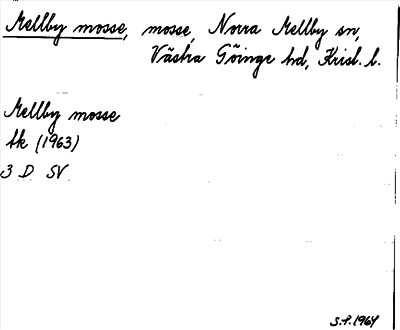 Mellby mosse, mosse, Norra Mellby sn,
Västra Göinge hd, Krist. l.
Mellby mosse
tk (1963)
3 D SV
S.P. 1964